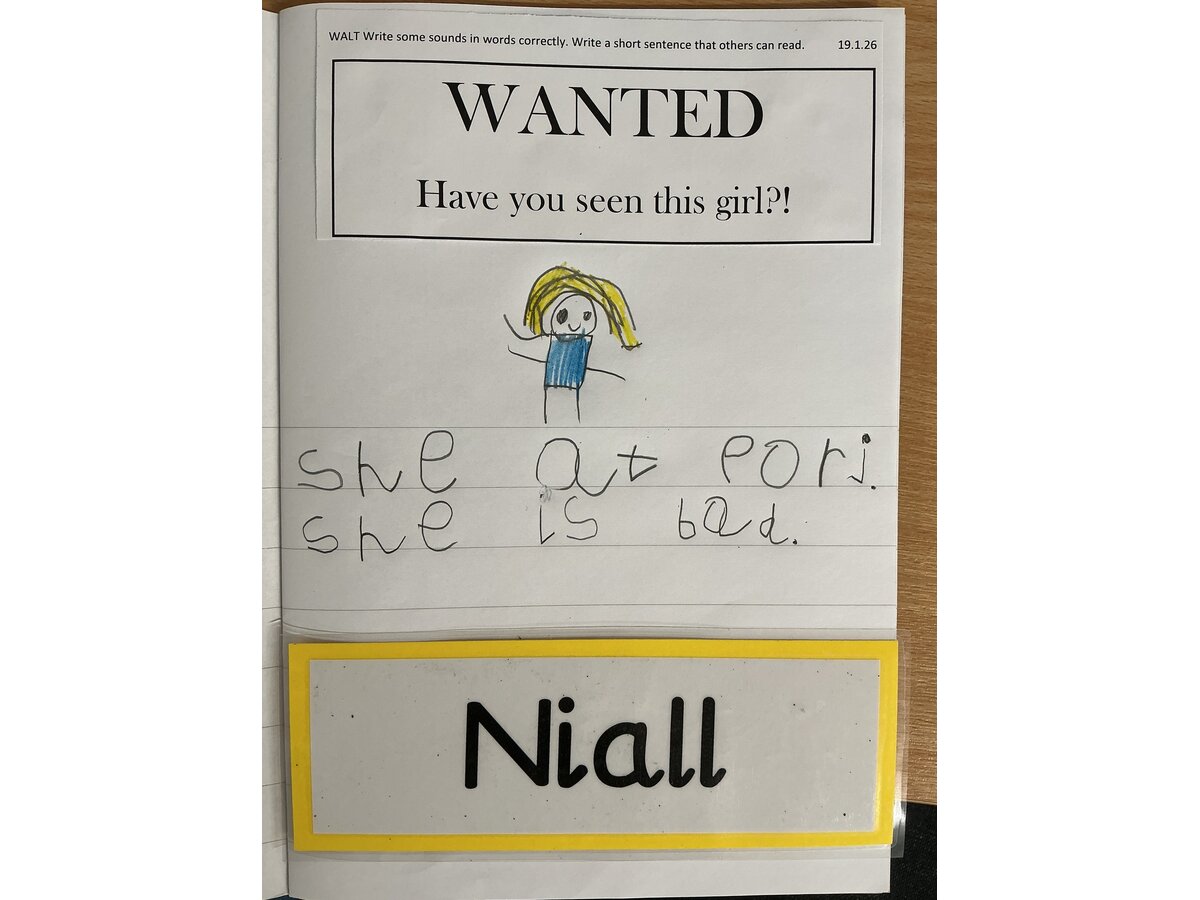 WALT Write some sounds in words correctly. Write a short sentence that others can read. 19.1.26
WANTED
Have you seen this girl?!
she at pori.
she is bad.
Niall